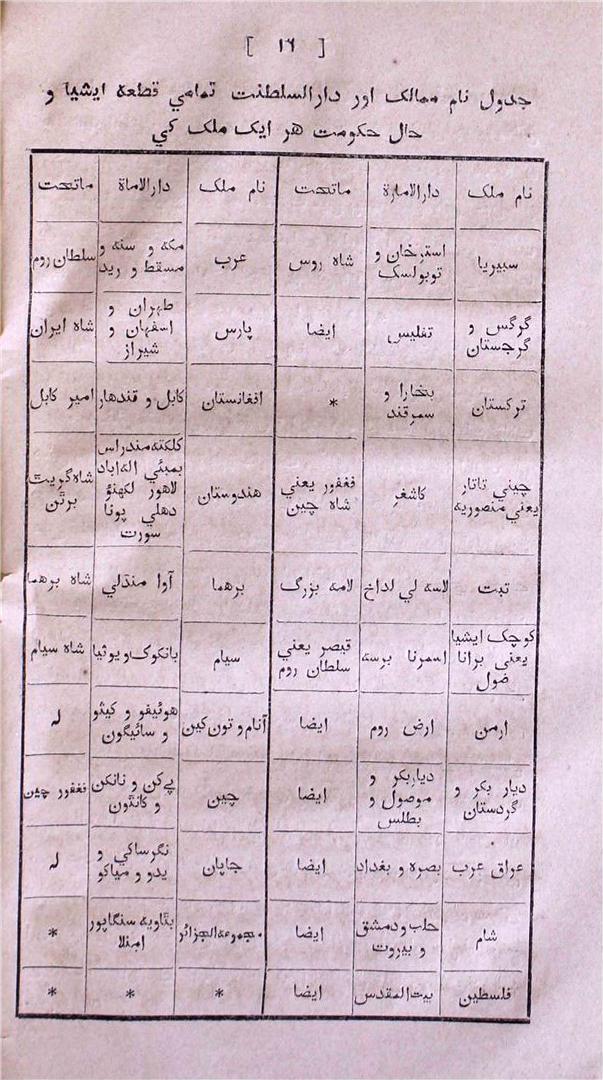 [ ۱۶ ]
جدول نام ممالک اور دارالسلطنت تمامي قطعه ايشيا و
حال حکومت هر ايک ملک کي
نام ملک | دارالامارة | ماتحت | نام ملک | دارالاماة | ماتحت
سيبريا | استرخان و توبولسک | شاه روس | عرب | مکه و سنه و مسقط و ريد | سلطان روم
گرگس و گرجستان | تفليس | ايضا | پارس | طهران و اسفهان و شيراز | شاه ايران
ترکستان | بخارا و سمرقند | * | افغانستان | کابل و قندهار | امير کابل
چيني تاتار يعني منصوريه | کاشغر | فغفور يعني شاه چين | هندوستان | کلکته مندراس بمبئي اله اباد لاهور لکهنؤ دهلي پونا سورت | شاه گريٹ برٹن
تبت | لاسه لي لداخ | لامه بزرگ | برهما | آوا منڈلي | شاه برهما
کوچک ايشيا يعني برانا ضول | اسمرنا برسه | قيصر يعني سلطان روم | سيام | بانکوک و يوثيا | شاه سيام
ارمن | ارض روم | ايضا | آنام و تون کين | هوئيفو و کيثو و سائيگون | له
ديار بکر و گردستان | دياربکر و موصول و بطلس | ايضا | چين | پےکن و نانکن و کانٹون | فغفور چين
عراق عرب | بصره و بغداد | ايضا | جاپان | نگرساکي و يدو و مياکو | له
شام | حلب و دمشق و بيروت | ايضا | مجموعه الجزائر | بٹاويه سنگاپور امنلا | *
فلسطين | بيت المقدس | ايضا | * | * | *